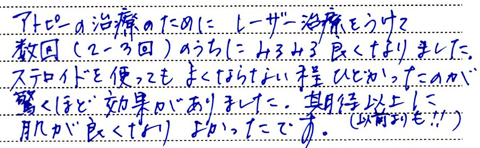 アトピーの治療のために レーザー治療をうけて
数回(2~3回)のうちに みるみる良くなりました。
ステロイドを使っても よくならない程 ひどかったのが
驚くほど 効果がありました。期待以上に
肌が良くなり よかったです。(以前よりも!!)